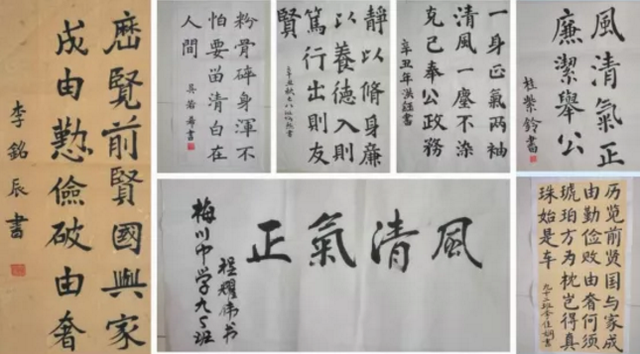 厯覽前賢國與家
成由懃儉破由奢
李銘辰書
粉骨碎身渾不
怕要畱清白在
人間
吳若希書
靜以脩身廉
以養德入則
篤行出則友
賢
辛丑秋九八班
一身正氣兩袖
清風一塵不染
克己奉公政務
辛丑年洪鈺書
風清氣正
廉潔舉公
桂紫鈴書
風清氣正
程耀伟书
梅川中学九5班
历览前贤国与家成
由勤俭败由奢何须
琥珀方为枕岂得真
珠始是车
九十二班李佳